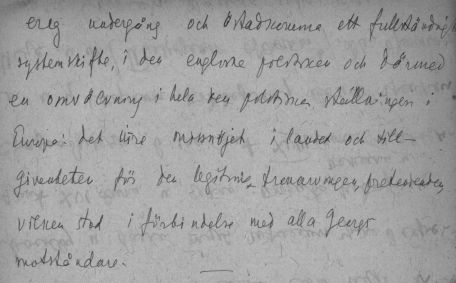 ereg undergång och åstadkomma ett fullständigt
systemskifte, i den engelska politiken och därmed
en omvälvning i hela den politiska ställningen i
Europa: det inre missnöjet i landet och till-
givenheten för den legitime tronarvingen, pretendenten,
vilken stod i förbindelse med alla Georgs
motståndare.